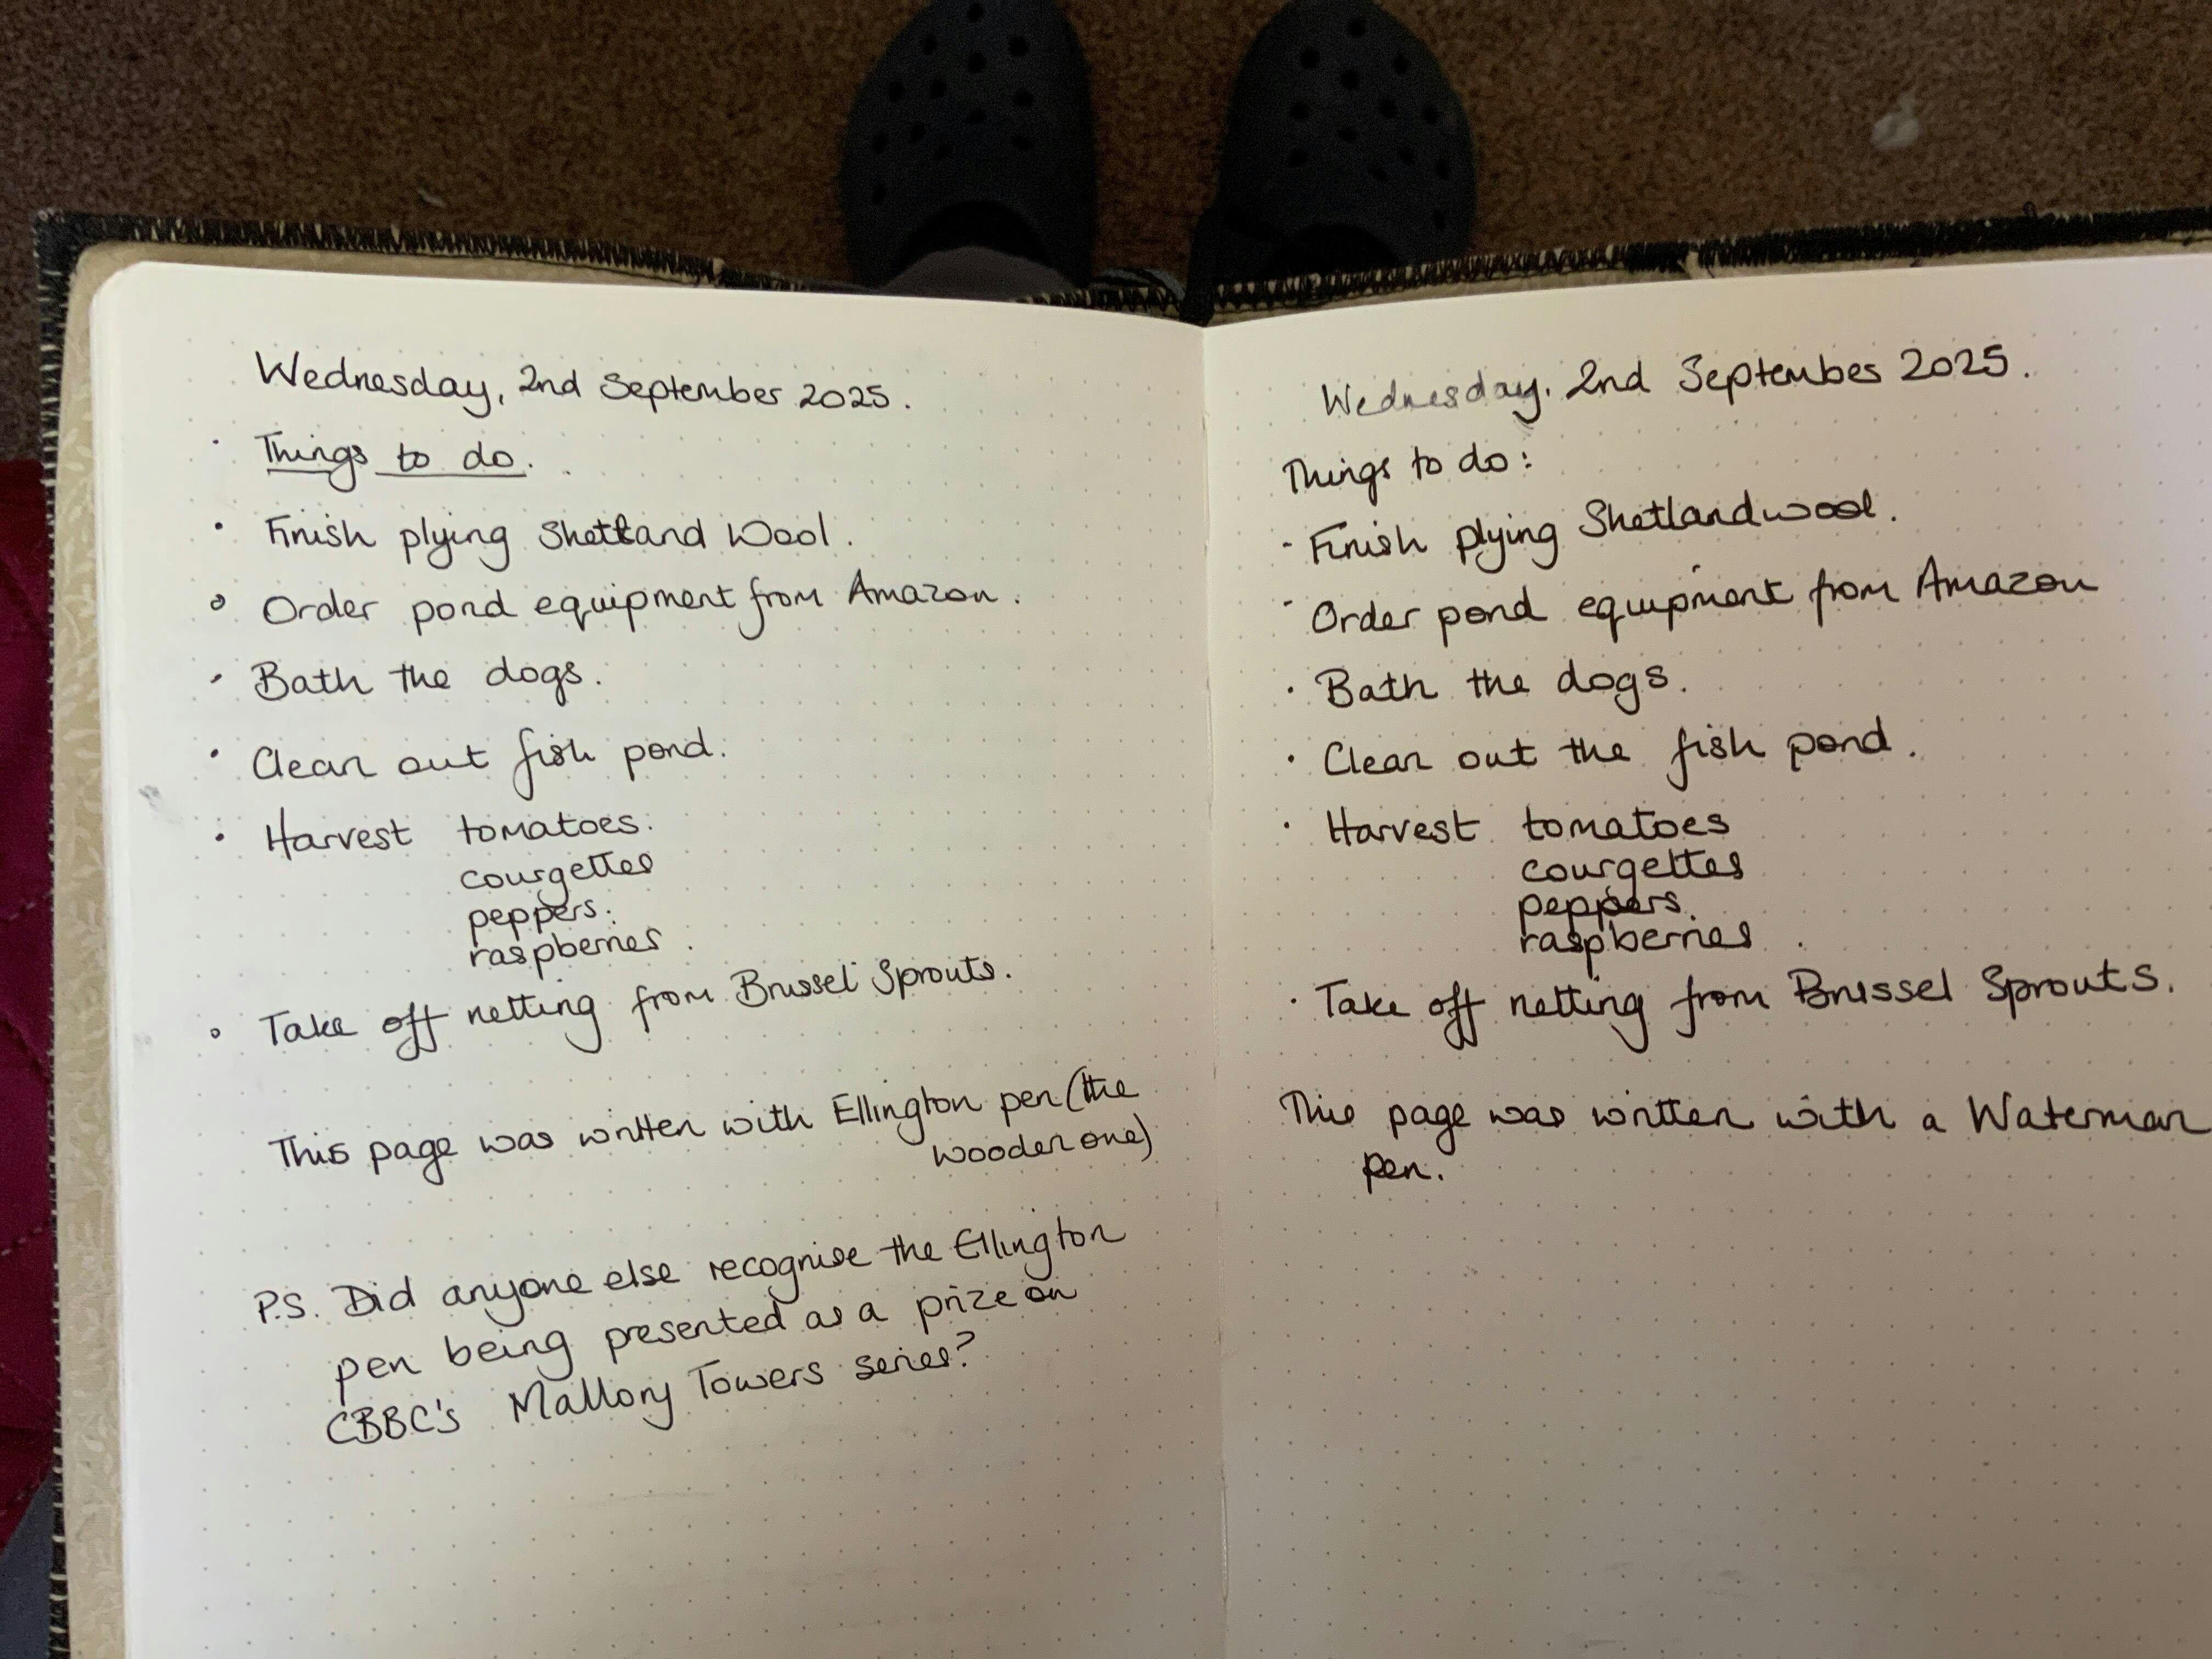 Wednesday, 2nd September 2025.
Things to do.
Finish plying Shetland Wool.
Order pond equipment from Amazon.
Bath the dogs.
Clean out fish pond.
Harvest tomatoes.
courgettes
peppers.
raspberries.
Take off netting from Brussel Sprouts.
This page was written with Ellington pen (the
wooden one)
P.S. Did anyone else recognise the Ellington
pen being presented as a prize on
CBBC's Mallory Towers series?
Wednesday, 2nd September 2025.
Things to do:
- Finish plying Shetland wool.
- Order pond equipment from Amazon
· Bath the dogs.
· Clean out the fish pond.
· Harvest tomatoes
courgettes
peppers.
raspberries.
· Take off netting from Brussel Sprouts.
This page was written with a Waterman
pen.